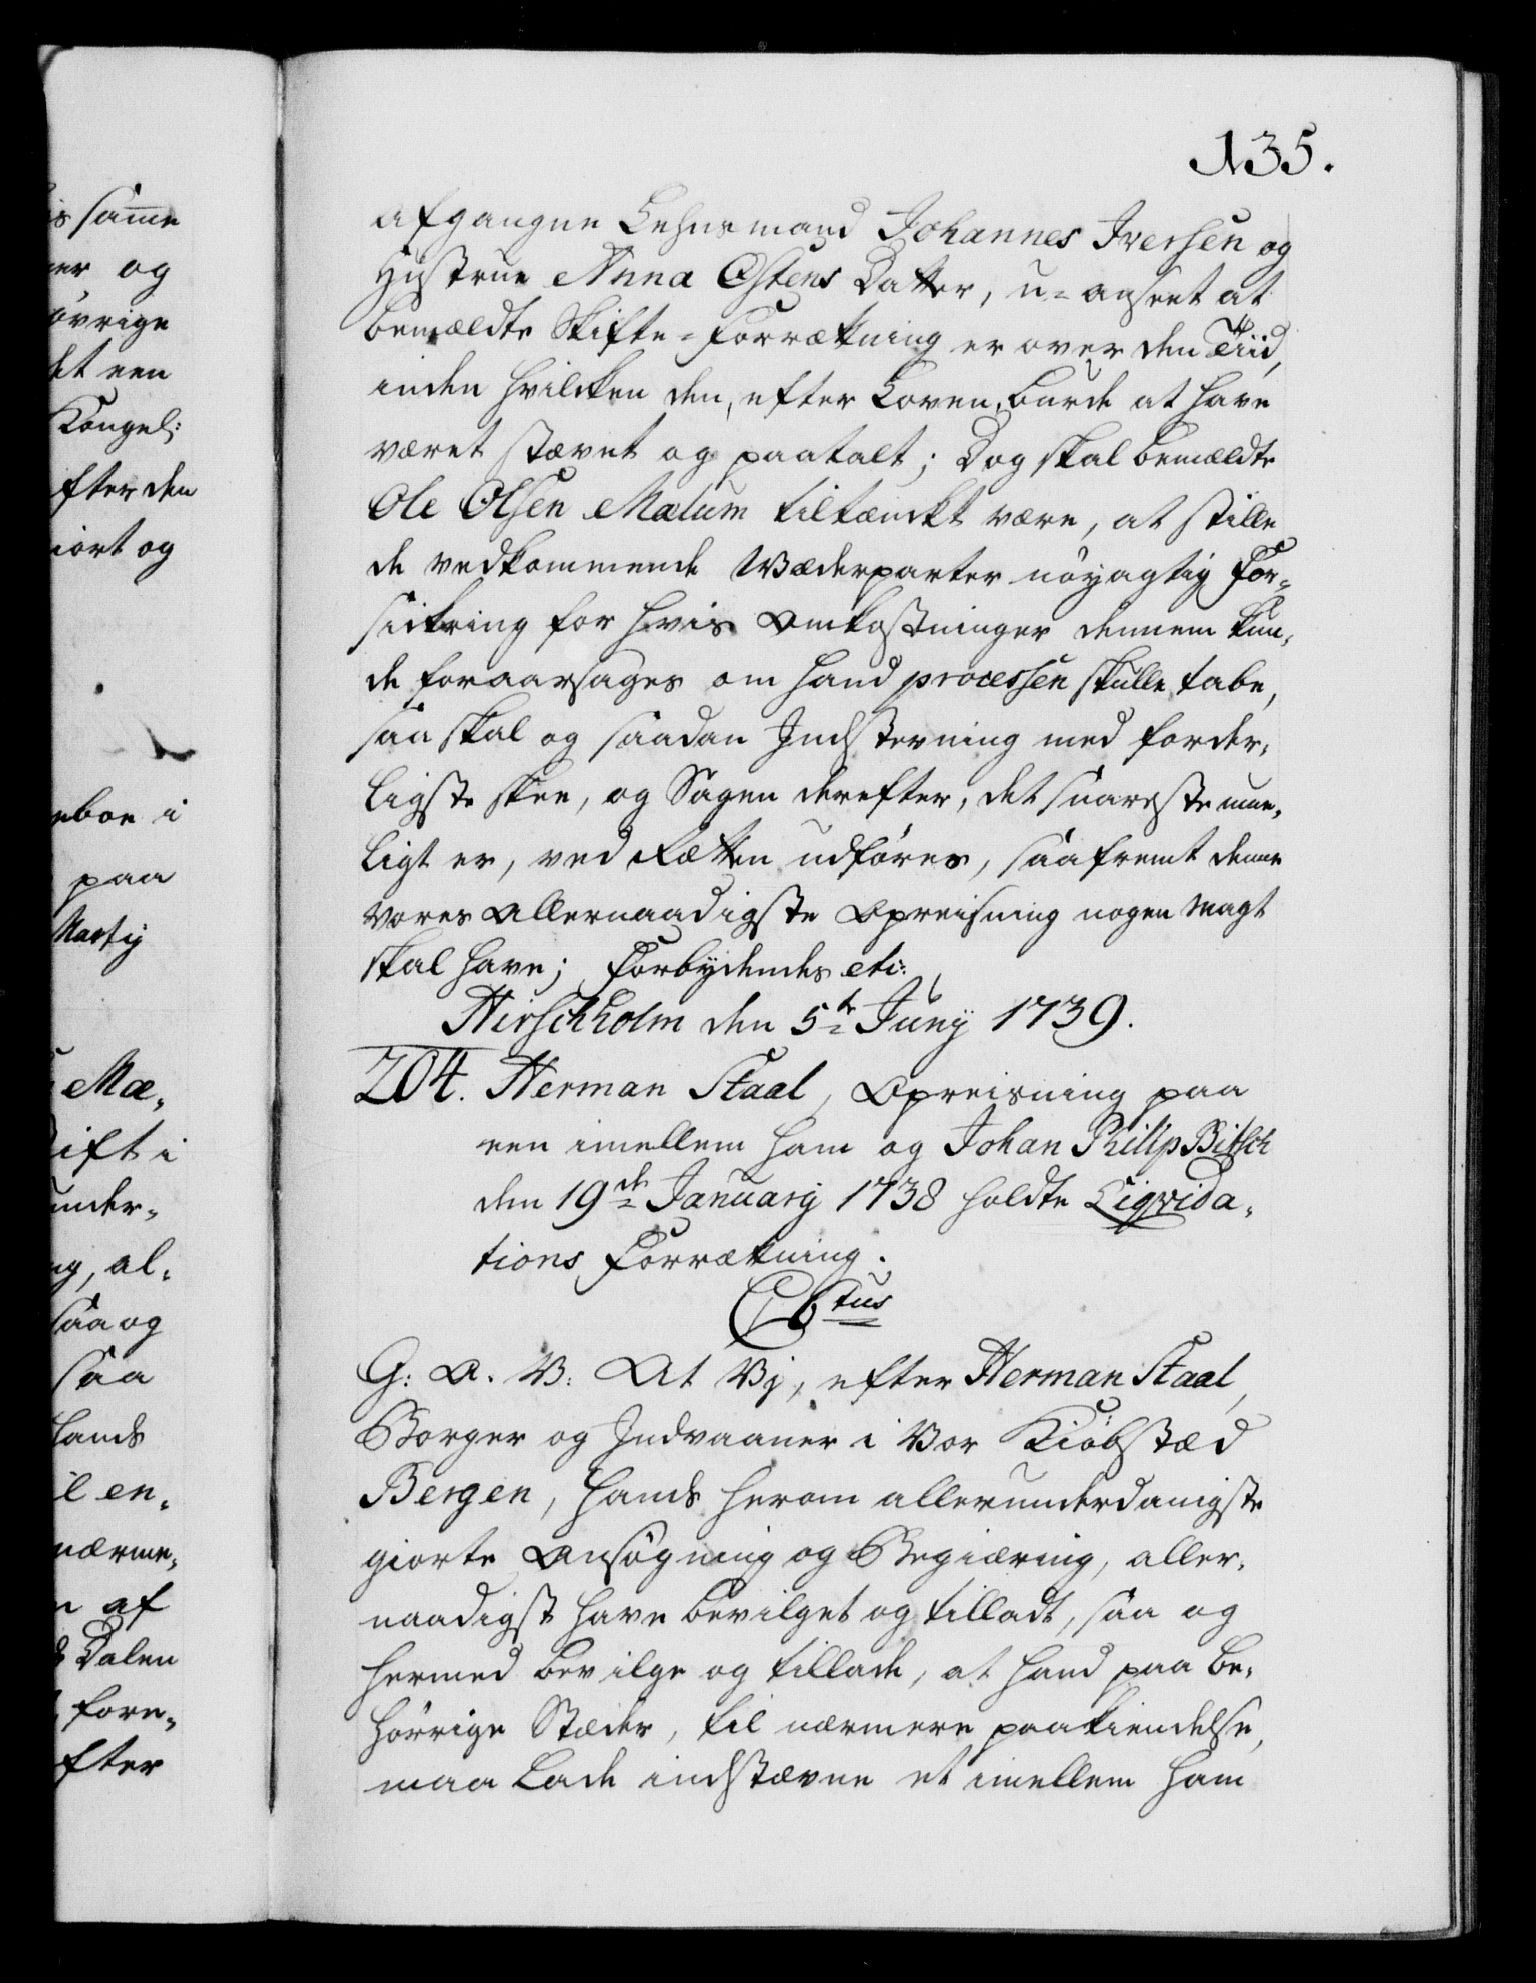 135.
is samme
ner og
övrige
et een
Kongel:
fter den
iort og
eboe i
paa
Martij
Mæ,
ift i
under,
ng, al,
saa og
saa
hands
il en,
nærme,
af
Dalen
fore,
fter
afgangne Lehnsmand Johannes Iversen og
Hustrue Anna Ostens Datter, u-anseet at
bemældte Skifte-Forretning er over den Tiid,
inden hvilcken den, efter Loven, burde at have
været stævnt og paatalt; Dog skal bemældte
Ole Olsen Mælum tiltænckt være, at stille
de vedkommende Wæderparter nöyagtig For,
sickring for hvis Omkostninger dennem kun,
de foraarsages om hand processen skulle tabe,
saa skal og saadan Indstevning med forder,
ligste skee, og Sagen derefter, det snareste mue,
ligt er, ved Retten udföres, saafremt denne
vores Allernaadigste Opreisning nogen Magt
skal have; Forbydendes etc:
Hirschholm den 5te Junij 1739.
204. Herman Staal, Opreisning paa
een imellem ham og Johan Philip Bitsch
den 19de Januarij 1738 holdte Liqvida,
tions Forretning.
C6tus
G: A. V: At Vj, efter Herman Staal,
Borger og Indvaaner i Vor Kiöbstæd
Bergen, hands herom allerunderdanigste
giorte Ansögning og Begiæring, aller,
naadigst have bevilget og tilladt, saa og
hermed bevilge og tillade, at hand paa be,
hörrige Stæder, til nærmere paakiendelse,
maa lade indstævne et imellem ham